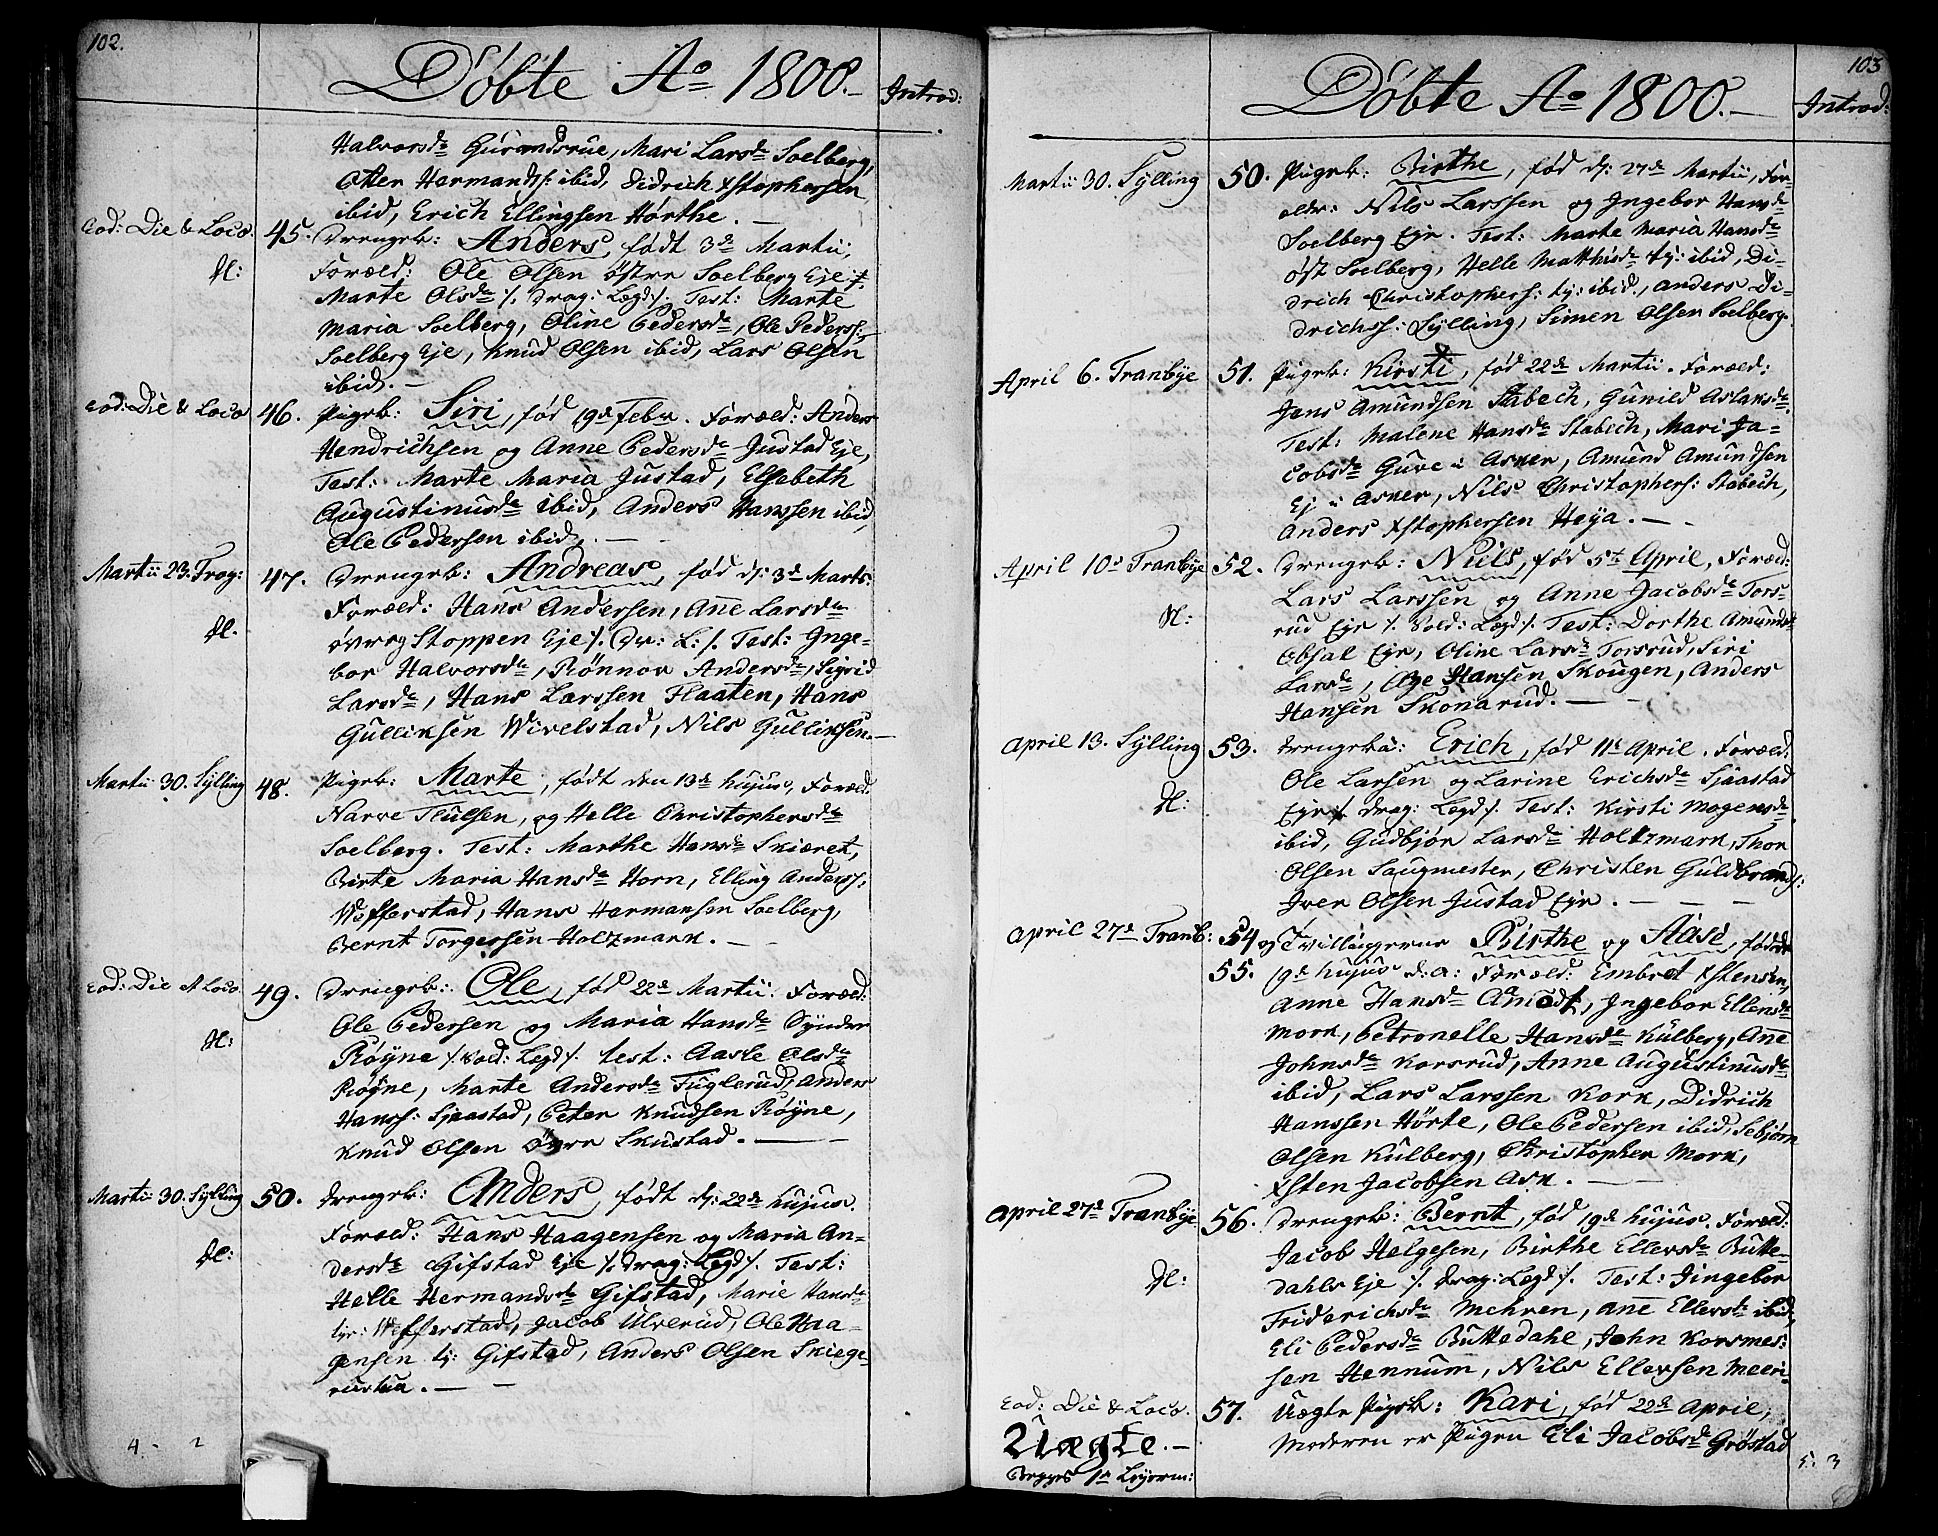 102.
Döbte Aº 1800.-
Introd:
Halvorsd. Gurandsrue, Mari Larsd. Soelberg,
Otter Hermands: ibid, Didrich Xstophersen
ibid, Erich Ellingsen Hörthe. —
Eod: Die & Loco. 45. Drengeb: Anders, födt 3d Martii,
Dl: Foræld: Ole Olsen östre Soelberg Eje,
Marte Olsd. /. Drag: Lægd /. Test: Marte
Maria Soelberg, Oline Pedersd., Ole Pederss:
Soelberg Eje, Knud Olsen ibid, Lars Olsen
ibid. —
Eod: Die & Loco 46. Pigeb: Siri, fød 19d Febr. Foræld: Anders
Hendrichsen og Anne Pedersd. Justad Eje,
Test: Marte Maria Justad, Elsebeth
Augustinusd. ibid, Anders Hanssen ibid,
Ole Pedersen ibid, . —
Martii 23. Frog: 47. Drengeb: Andreas, fød d: 3d Marts:
Dl. Foræld: Hans Andersen, Ane Larsd.
øvreg Stoppen Eje /. Dr: L: /. Test: Inge-
bor Halvorsd., Rönnov Andersd., Sigrid
Larsd., Hans Larssen Flaaten, Hans
Gulliksen Wivelstad, Nils Gulliksen. —
Martii 30. Sylling 48. Pigeb: Marte, født den 13d hujus, Foræld:
Narve Tiulsen, og Helle Christophersd.
Soelberg. Test: Marthe Hansd. Skiæret,
Birte Maria Hansd. Horn, Elling Anderss:
Wefferstad, Hans Hermansen Soelberg,
Bernt Torgersen Holtzmark. —
Eod: Die et Loco. 49. Drengeb: Ole, fød 22d Martii. Foræld:
Dl: Ole Pedersen og Maria Hansd. Synder
Röyne /. Sold: Lægd /. Test: Aasle Olsd.
Röyne, Marte Andersd. Fuglerud, Anders
Hanss: Sjaastad, Peter Knudsen Röyne,
Knud Olsen Övre Skustad. —
Martii 30. Sylling 50. Drengeb: Anders, født d: 22d hujus.
Dl: Foræld: Hans Haagensen og Maria An-
dersd. Gifstad Eje /. Drag: Legd /. Test:
Helle Hermandsd. Gifstad, Marie Hansd.
tje: Wefferstad, Jacob Ulverud, Ole Haa-
gensen tj: Gifstad, Anders Olsen Skiege-
rustua. —
4 - 2
103
Döbte Aº 1800.-
Introd:
Martii 30. Sylling 50. Pigeb: Birthe, fød d: 27d Martii, For-
ældr: Nils Larssen og Ingebor Hansd.
Soelberg Eje. Test: Marte Maria Hansd.
öst Soelberg, Helle Matthisd. tj: ibid, Di-
drich Christophers: tj: ibid., Anders Di-
drichss: Sylling, Simen Olsen Soelberg.
April 6. Tranbye 51. Pigeb: Kirsti, fød 22d Martii. Foræld:
Jens Amundsen Stabech, Gunild Aslaksd.
Test: Malene Hansd. Stabech, Mari Ja-
cobsd. Guve i Asker, Amund Amundsen
Ej i Asker, Nils Christophers: Stabech,
Anders Xstophersen Heya. —
April 10d Tranbye 52. Drengeb: Niils, fød 5t April, Foræld:
Dl: Lars Larssen og Anne Jacobsd. Tors-
rud Eje /. Sold: Lægd /. Test: Dorthe Amundsd.
Obsal Eje, Oline Larsd. Torsrud, Siri
Larsd., Age Hansen Skougen, Anders
Hansen Skonarud. —
April 13. Sylling 53. Drengeba: Erich, fød 11t April. Foræld:
Dl: Ole Larsen og Larine Erichsd. Sjaastad
Eje /. Drag: Legd /. Test: Kirsti Mogensd.
ibid, Gudbjør Larsd. Holtzmark, Thor
Olsen Saugmester, Christen Guldbrands:
Iver Olsen Justad Eje. —
April 27d Tranb: 54 og Tvillingerne Birthe og Aase, fødde
55. 19d hujus d: a: Foræld: Embret Xstensen,
Anne Hansd. Amodt, Ingebor Ellensd.
Mork, Petronelle Hansd. Kulberg, Ane
Johnsd. Korsrud, Anne Augustinusd.
ibid, Lars Larssen Kork, Didrich
Hanssen Hörte, Ole Pedersen ibid, Sebjørn
Olsen Kulberg, Christopher Mork,
Xsten Jacobsen Ask. —
April 27d Tranbye 56. Drengeb: Bernt, fød 19d hujus. Foræld:
Dl: Jacob Helgesen, Birthe Ellersd. Butte-
dahls Eje /. Drag: Legd /. Test: Jingebor
Friderichsd. Mehren, Ane Ellersd. ibid,
Eli Pedersd. Buttedahl, John Korsmes:
sen Hennum, Nils Ellevsen Meeri-
Eod: Die & Loco. 57. Uægte Pigeb: Kari, fød 22d April,
Uægte. — Moderen er Pigen Eli Jacobsd. Gröstad
Begges 1te Leyerm:
5. 3